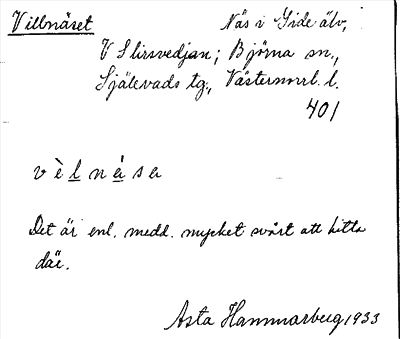 Villnäset Näs i Gide älv,
V Slirsvedjan; Björna sn.,
Själevads tg., Västernorrl. l.
401
vèlnása
Det är enl. medd. mycket svårt att hitta
där.
Asta Hammarberg 1933